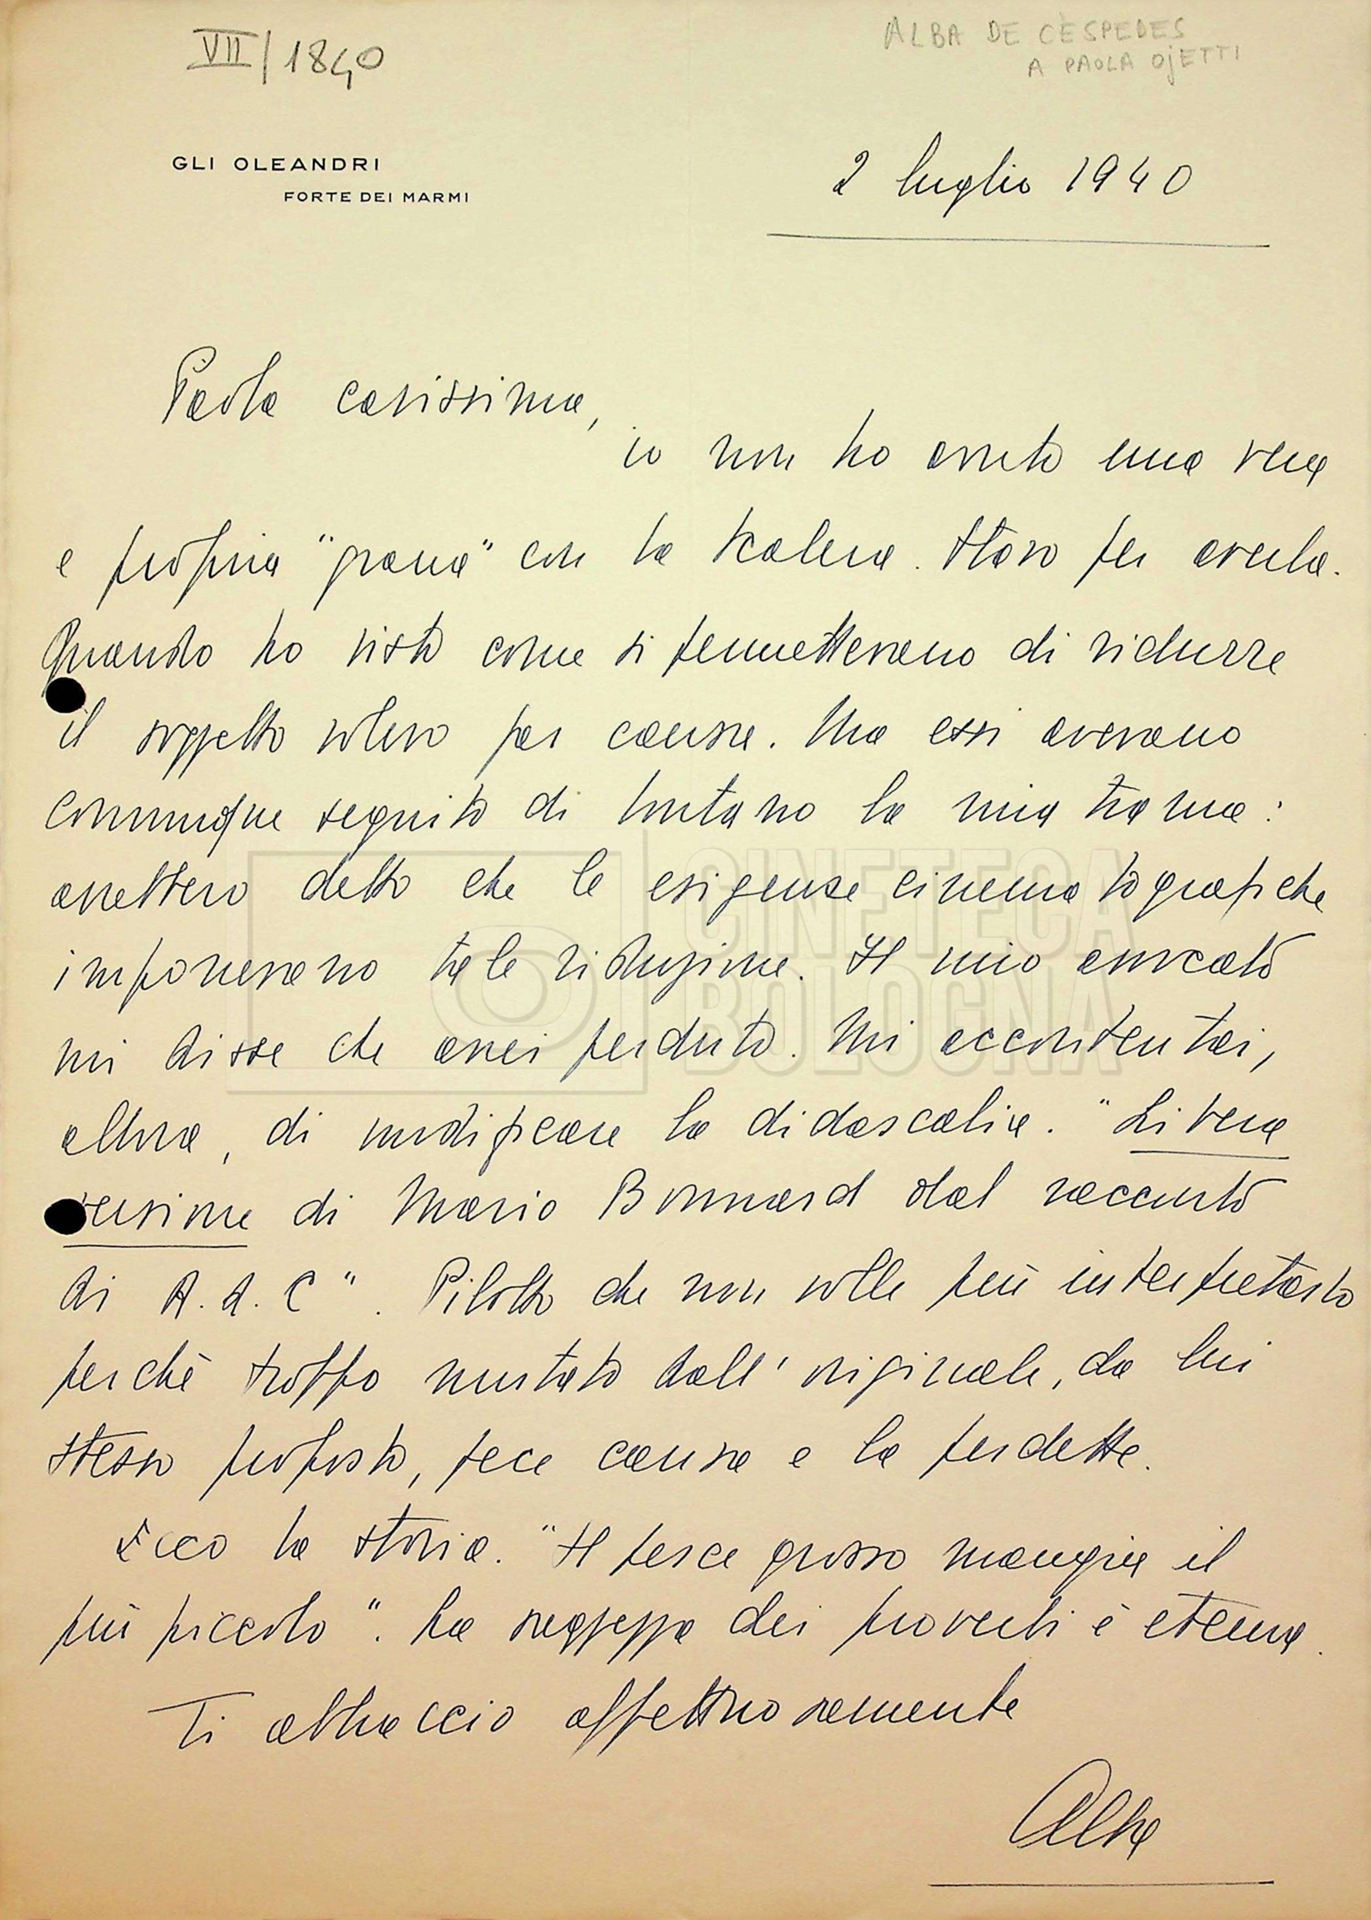 VII/1840
ALBA DE CÈSPEDES
A PAOLA OJETTI
GLI OLEANDRI
FORTE DEI MARMI
2 luglio 1940
Paola carissima,
io non ho avuto una vera
e propria "grana" con la Scalera. Stavo per averla.
Quando ho visto come si permettevano di ridurre
il soggetto volevo far causa. Ma essi avevano
comunque seguito di lontano la mia trama:
avrebbero detto che le esigenze cinematografiche
imponevano tale riduzione. Il mio avvocato
mi disse che avrei perduto. Mi accontentai,
allora, di modificare la didascalia. "Libera
versione di Mario Bonnard dal racconto
di A. d. C". Pilotto che non volle più interpretarlo
perchè troppo mutato dall'originale, da lui
stesso proposto, fece causa e la perdette.
Ecco la storia. "Il pesce grosso mangia il
più piccolo". La saggezza dei proverbi è eterna.
Ti abbraccio affettuosamente
Alba
CINETECA
BOLOGNA